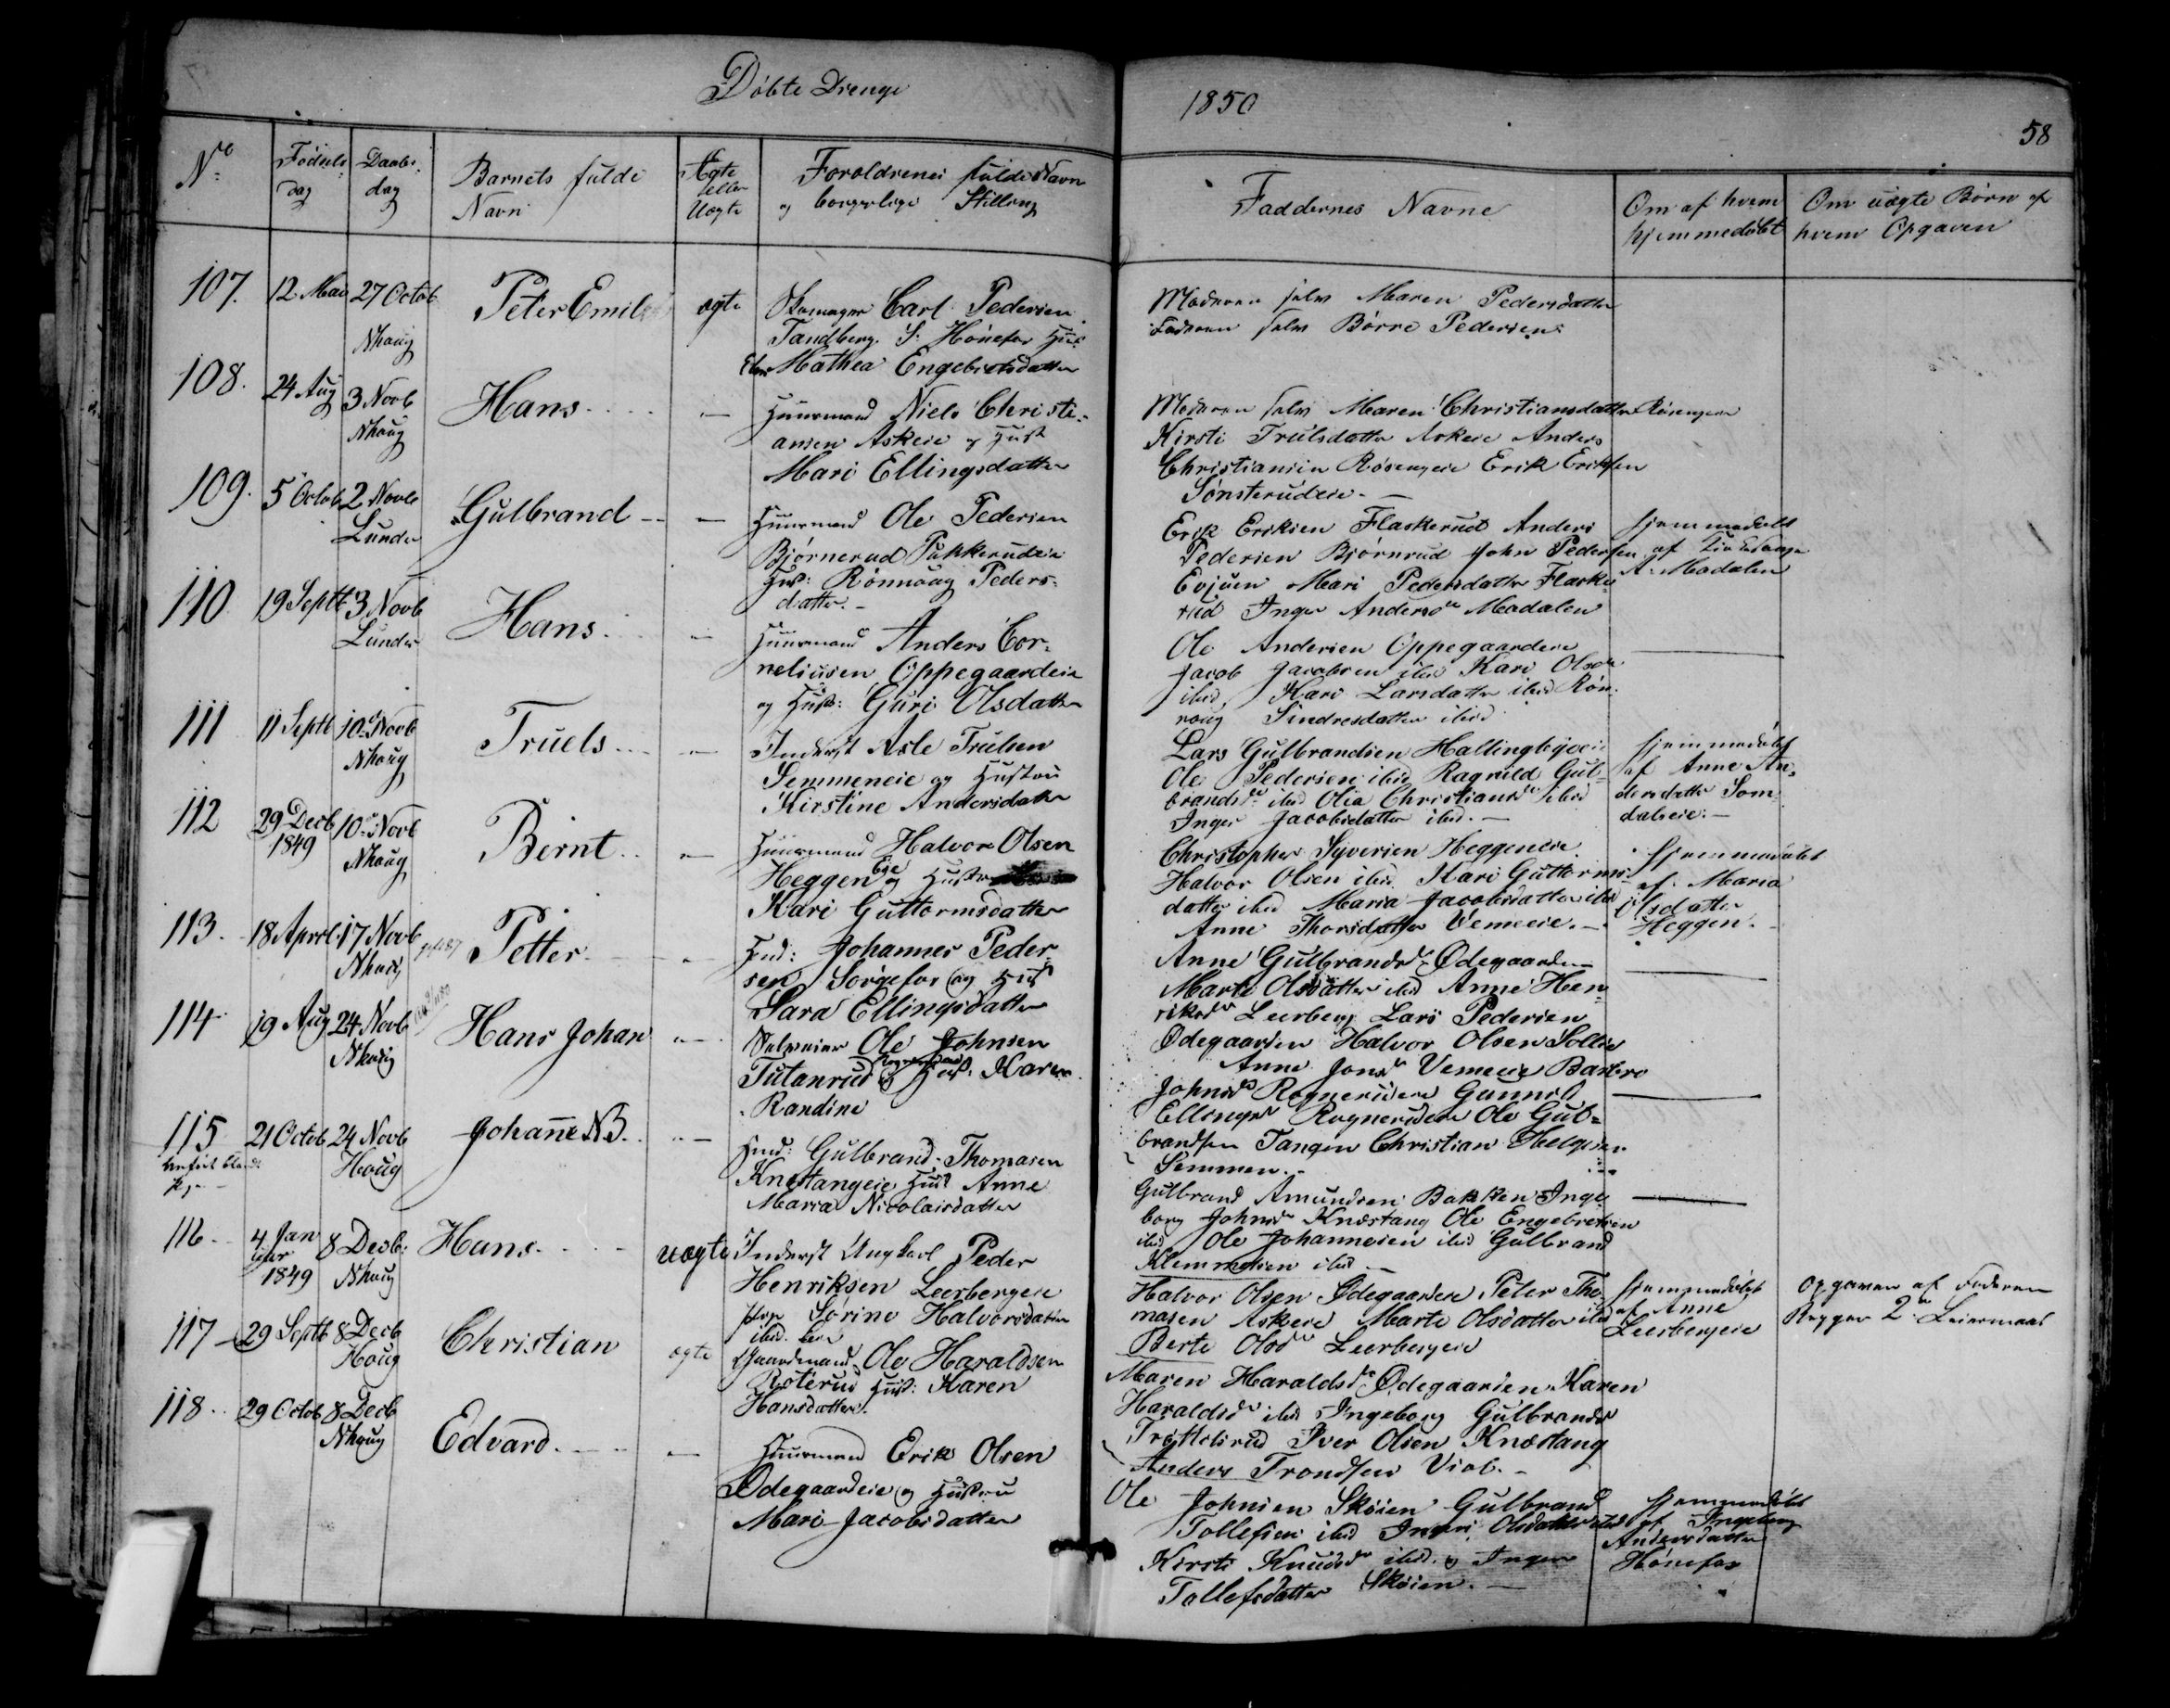 Døbte Drenge
1850
58
No
Fødsels dag
Daabs dag
Barnets fulde Navn
Ægte eller Uægte
Forældrenes fulde Navn
og borgerlige Stilling
Faddernes Navne
Om af hvem hjemmedøbt
Om uægte Børn af hvem Opgaven
107. 12 Mai 27 Octob Nhoug
Peter Emil ægte
Carl Pedersen
Tandberg. S. Hønefos
Mathea Engebretsdatter
Maren Pedersdatter
Børre Pedersen
108. 24 Aug 3 Novb Nhoug
Hans
Huusmand Niels Christi-
ansen Askeie og Hust
Mari Ellingsdatter
Maren Christiansdatter
Kirsti Trulsdatter Askeie Anders
Christiansen Røsengeie Erik Eriksen
Sønsterudeie.
109. 5 Octob 2 Novb Lunder
Gulbrand
Huusmand Ole Pedersen
Bjørnerud
Hust: Rønnoug Peders-
datter.
Erik Eriksen Flaskerud Anders
Pedersen Bjørnrud John Pedersen
Evjuen Mari Pedersdatter Flaske
rud Inger Andersdr Madalen
Hjemmedøbt
af
A. Madalen
110 19 Septb 3 Novb Lunder
Hans.
Huusmand Anders Cor-
neliusen Oppegaardeie
og Hust: Guri Olsdatter
Ole Andersen Oppegaardeie
Jacob Jacobsen ibid Kari Olsdr
ibid, Kari Larsdatter ibid Røn-
noug Sindresdatter ibid
111 11 Septb 10 Novb Nhoug
Truels
Inderst Asle Trulsen
Semmeneie og Hustru
Kirstine Andersdatter
Lars Gulbrandsen Hallingbyeie
Ole Pedersen ibid Ragnild Gul-
brandsdr ibid Olia Christiansdr ibid
Inger Jacobsdatter ibid.
Hjemmedøbt
af Anne An-
dersdatter Som
dalseie.
112 29 Decb 1849 10 Novb Nhoug
Bernt
Huusmand Halvor Olsen
Heggen Eie og Hustru
Kari Guttormsdatter
Christopher Syversen Heggeneie
Halvor Olsen ibid. Kari Guttorms-
datter ibid Maria Jacobsdatter ibid
Anne Thorsdatter Vemeeie.
Hjemmedøbt
af. Maria
Olsdatter
Heggen.
113. 18 April 17 Novb Nhoug
Petter
Johannes Peder-
sen Sørgefos og Hust
Sara Ellingsdatter
Anne Gulbrandsdr Ødegaarden
Marte Olsdatter ibid Anne Hen-
riksdr Leerberg Lars Pedersen
Ødegaarden Halvor Olsen Sollie
114 19 Aug 24 Novb Nhoug
Hans Johan
Ole Johnsen
Tutanrud og Hust: Karen
Randine
Anne Jonsdr Vemeeie Barbro
Johnsdr Rognerudeie Gunnild
Ellingsdr Rognerudeie Ole Gul-
brandsen Tangen Christian Helgesen
Semmen.
115 21 Octob 24 Novb Houg
Johanne NB.
Gulbrand Thomasen
Knestangeie Hust Anne
Maria Nicolaisdatter
Gulbrand Amundsen Bakken Inge-
borg Johnsdr Knæstang Ole Engebretsen
ibid Ole Johannesen ibid Gulbrand
Klemmetsen ibid
116. 4 Januar 1849 8 Decb: Nhoug
Hans.
uægte
Inderst Ungkarl Peder
Henriksen Leerbergeie
Pige Sørine Halvorsdatter
ibid.
Halvor Olsen Ødegaardeie Peter Tho-
masen Askeie Marte Olsdatter ibid
Berte Olsdr Leerbergeie
Hjemmedøbt
af Anne
Leerbergeie
Opgaven af Faderen
2 Leiermaal
117 29 Septb 8 Decb Houg
Christian
ægte
Gaardmand Ole Haraldsen
Roterud Hust: Karen
Hansdatter.
Maren Haraldsdr Ødegaarden Karen
Haraldsdr ibid Ingeborg Gulbrandsdr
Trøttelsrud Iver Olsen Knæstang
Anders Trondsen
118. 29 Octob 8 Decb Nhoug
Edvard.
Huusmand Erik Olsen
Ødegaardeie og Hustru
Mari Jacobsdatter
Ole Johnsen Skøien Gulbrand
Tollefsen ibid Olsdatter ibid
Kirsti Knudsdr ibid. og Inger
Tollefsdatter Skøien.
Hjemmedøbt
af Ingeborg
Andersdatter
Hønefos